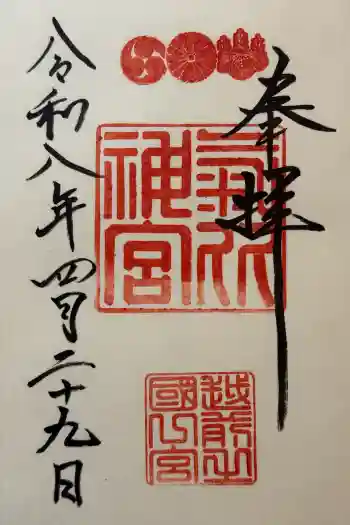 奉拝
氣比
神宮
越前之
國一宮
令和八年四月二十九日